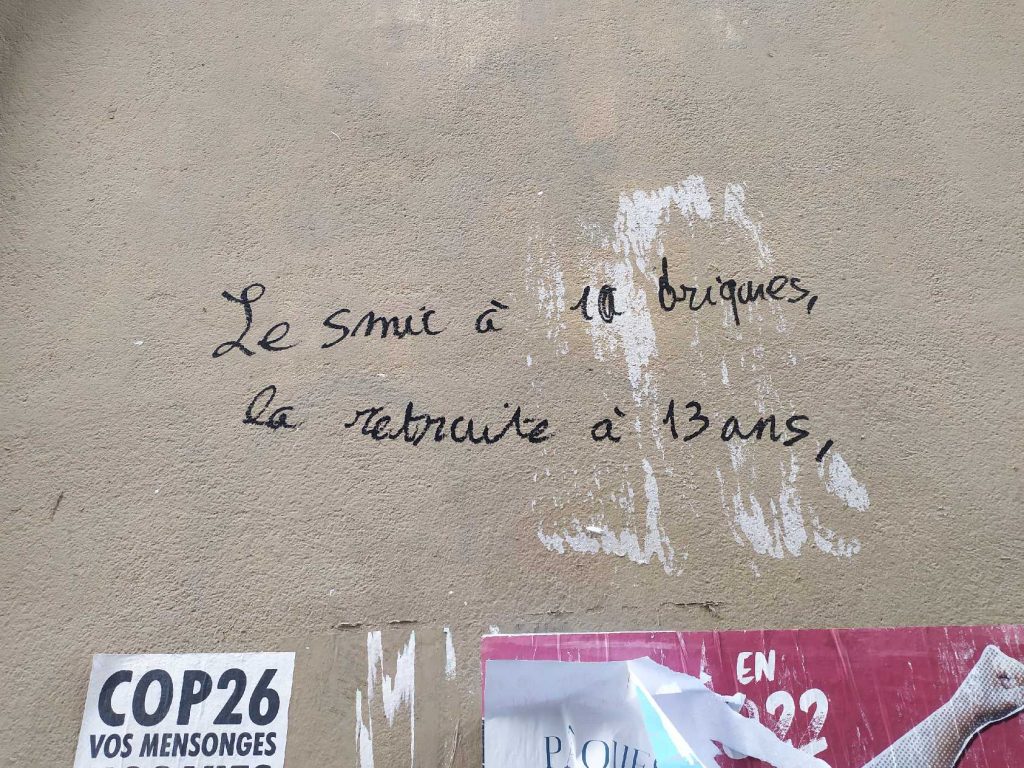 Le smic à 10 briques,
la retraite à 13 ans,
COP26
VOS MENSONGES
EN
PÂQUE